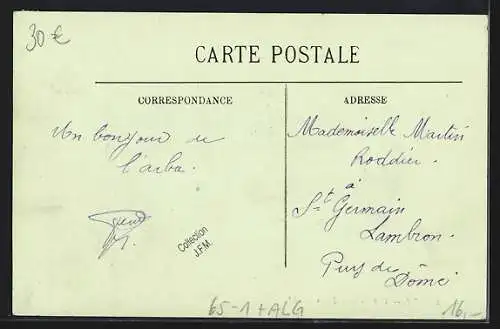 30 €
CARTE POSTALE
CORRESPONDANCE
ADRESSE
Un bonjour de
l'arba.
Mademoiselle Martin
Roddier.
à
St Germain
Lambron.
Puy de
Dôme
Collection
J.F.M.
65-1 + ALG
16,-